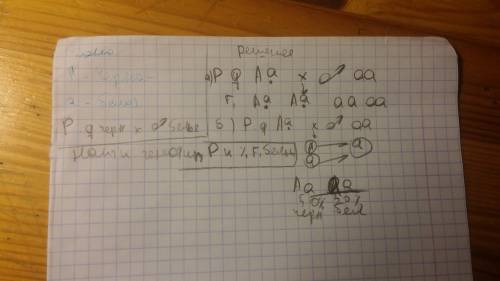 Дано Решение
А - черная
а - белая
а) Р ♀ Аа × ♂ аа
F₁ Аа Аа аа аа
Р ♀ черн × ♂ белые
б) Р ♀ Аа × ♂ аа
Найти генотип Р и % F₁ белых
А а
а
Аа аа
50% 50%
черн бел